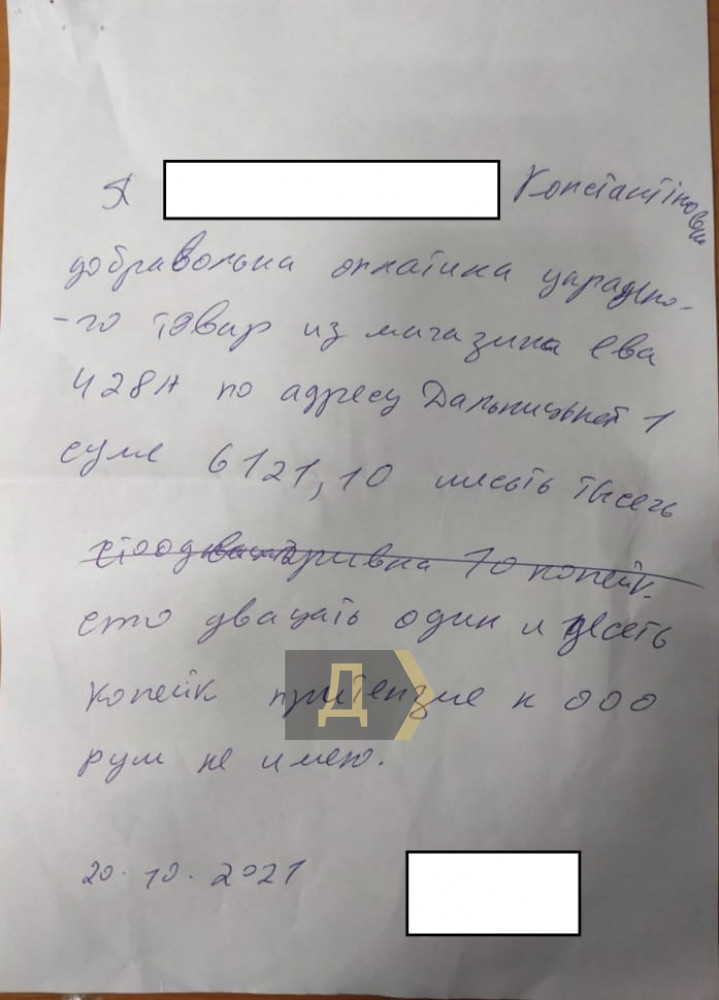 Я Константіновна
добравольна оплатила украдено-
-го товар из магазина ева
428А по адресу Дальницькая 1
суме 6121,10 шесть тысечь
сто двацать один и десеть
копейк притензие к ООО
рум не имею.
20.10.2021
Д